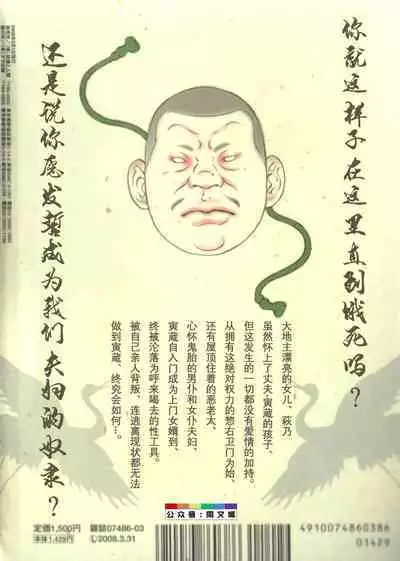 你就这样子在这里直到饿死吗？
还是说你愿发誓成为我们夫妇的奴隶？
大地主漂亮的女儿、萩乃
虽然怀上了丈夫·寅蔵的孩子、
但这发生的一切都没有爱情的加持。
从拥有这绝对权力的惣右卫门为始、
还有屋顶住着的恶老太、
心怀鬼胎的男仆和女仆夫妇、
寅蔵自入门成为上门女婿到、
终被沦落为呼来喝去的性工具。
被自己亲人背叛、连逃离现状都无法
做到寅蔵、终究会如何…。
公众号:周文斌
定価1,500円 雑誌07486-03
本体1,429円 ©2008.3.31
4910074860386
01429